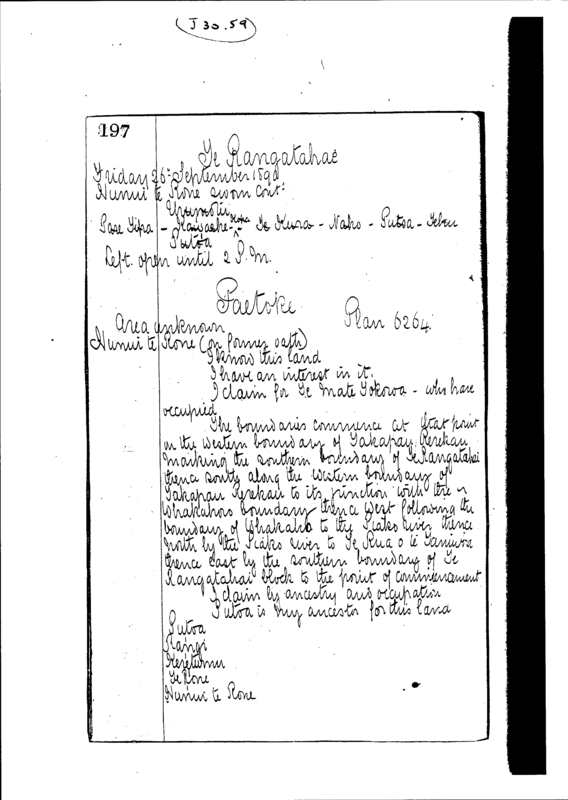 J 30.59
197
Te Rangatahae
Friday 26th September 1890
Hunui te Rone sworn Cont:
Putoa
Te Kura - Nako - Putoa -
Left open until 2 P.M.
Paetoke
Area unknown Plan 6264
Hunui te Rone (on former oath)
I know this land
I have an interest in it.
I claim for Te Mate Tokowa - who have
occupied
The boundaries commence at that point
on the western boundary of Takapau Rerekau
marking the southern boundary of Te Rangatahai
thence south along the western boundary of
Takapau Rerekau to its junction with the
Whakahoro boundary thence West following the
boundary of Whakahoro to the Piako river thence
north by the Piako river to Te Rua o te Taniwha
thence east by the southern boundary of Te
Rangatahai block to the point of commencement
I claim by ancestry and occupation
Putoa is my ancestor for this land
Putoa
Rangi
Te Rone
Hunui te Rone